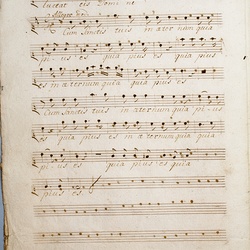 luceat eis Domi ne
Allegro
Cum Sanctis tuis in æter nam quia
pi-us es quia pius es quia
es in æternum quia pius es
Cum Sanctis tuis in æternum quia pi-us
quia pius es in æternum quia
pi-us es quia pius es quia
pius es